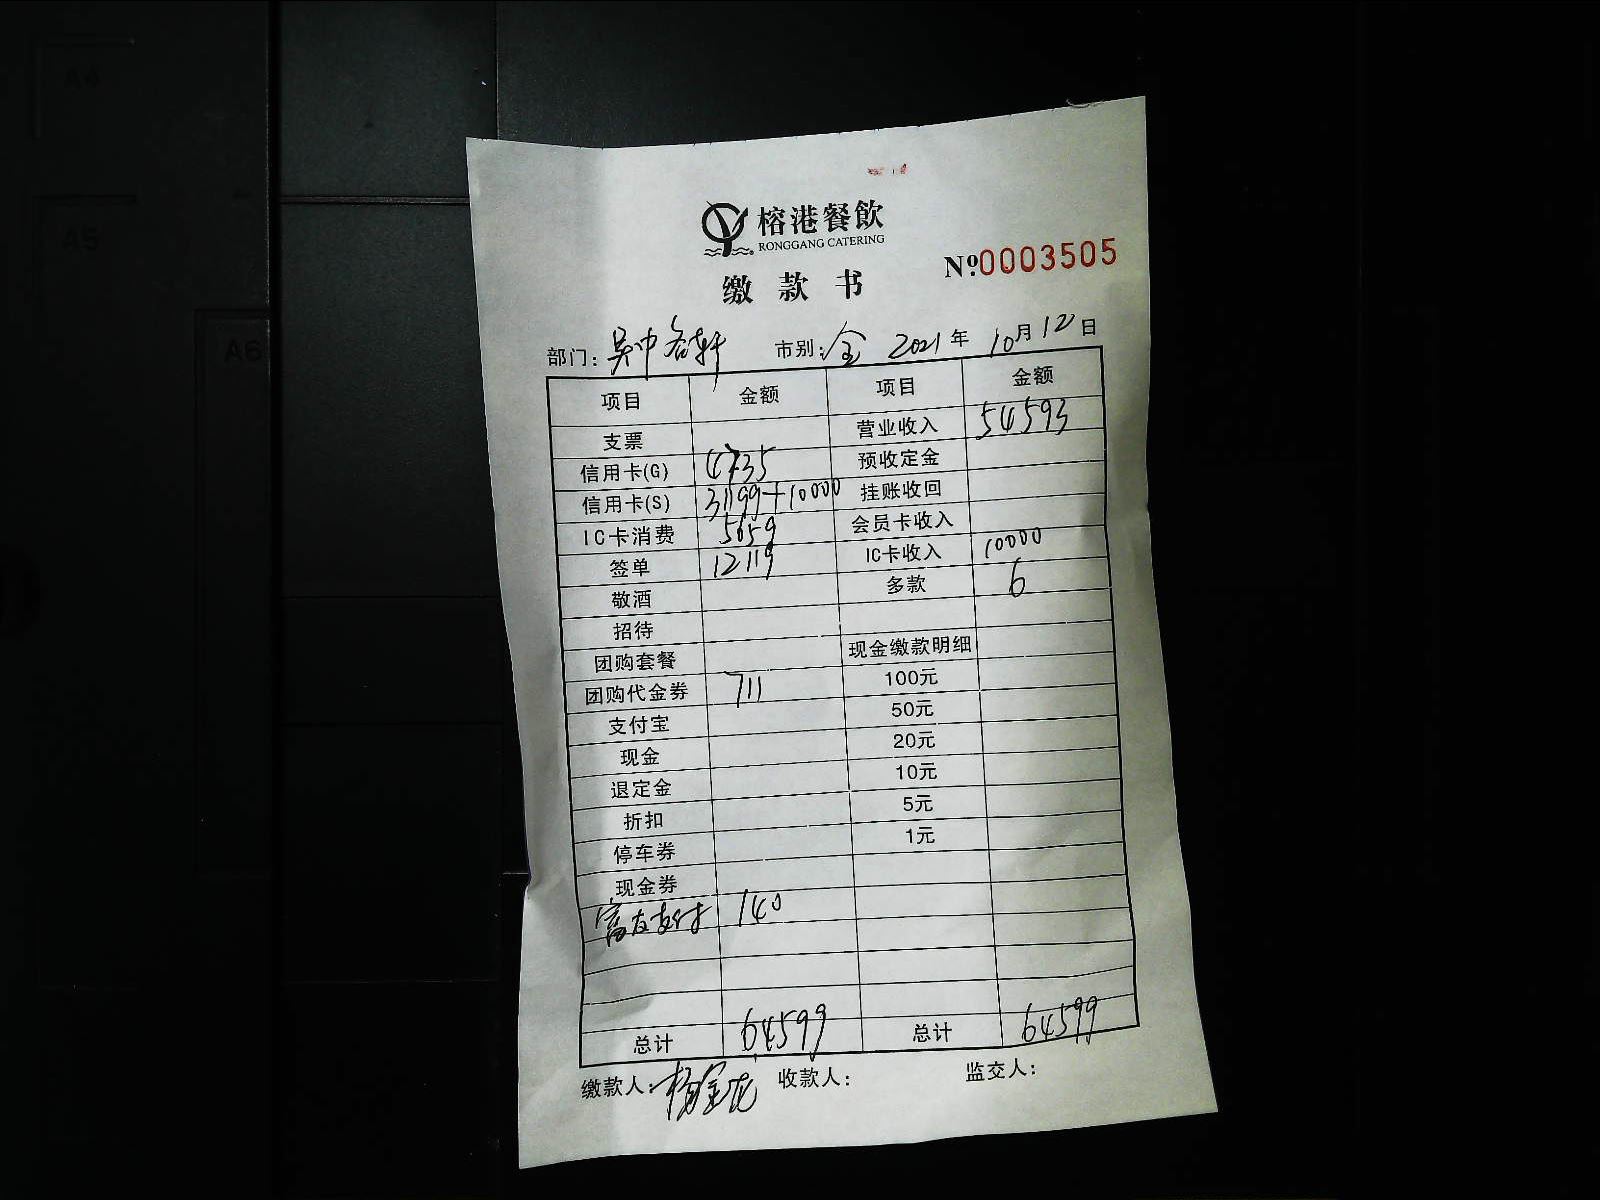 榕港餐飲
RONGGANG CATERING
缴款书 Nº:0003505
部门: 吴中 市别: 全 2021年 10月 12日
项目 金额 项目 金额
支票 营业收入 54593
信用卡(G) 4735 预收定金
信用卡(S) 31199+10000 挂账收回
IC卡消费 5659 会员卡收入
签单 12119 IC卡收入 10000
敬酒 多款 6
招待
团购套餐 现金缴款明细
团购代金券 711 100元
支付宝 50元
现金 20元
退定金 10元
折扣 5元
停车券 1元
现金券
富友支付 140
总计 64599 总计 64599
缴款人: 收款人: 监交人:
A4
A5
A6